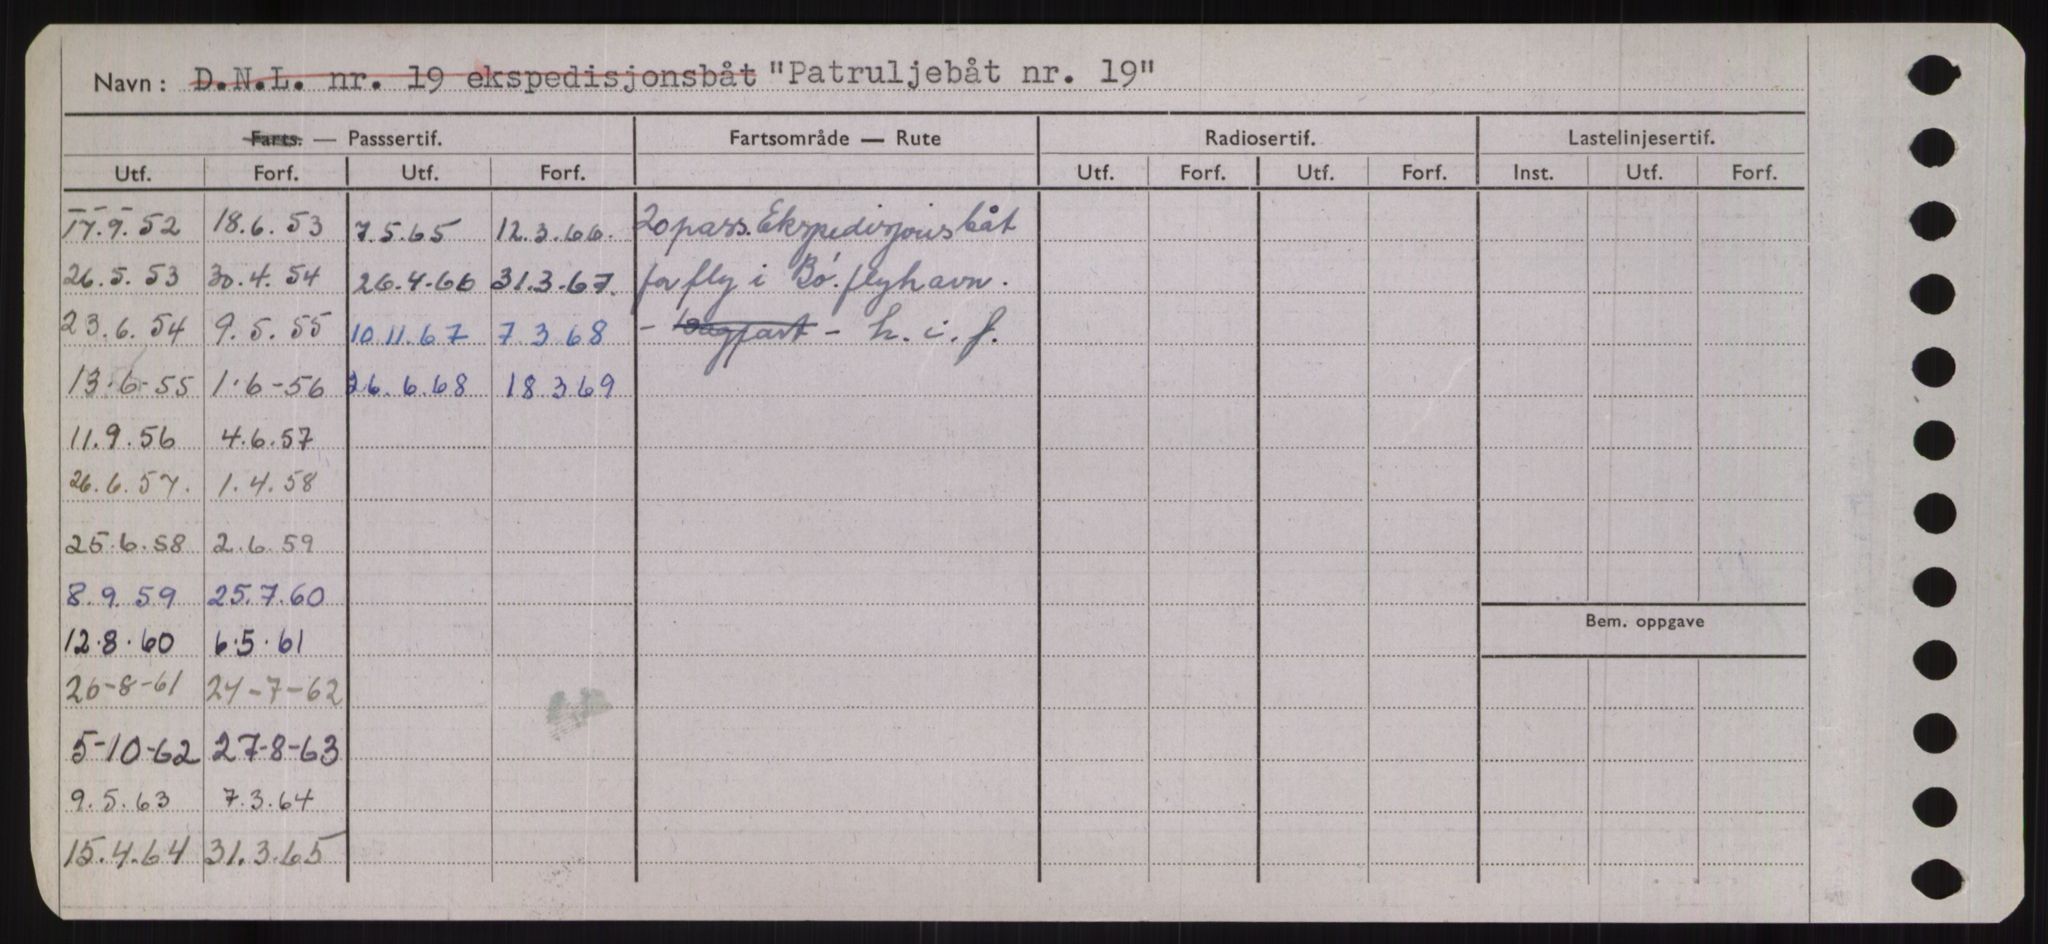 Navn: D.N.L. nr. 19 ekspedisjonsbåt "Patruljebåt nr. 19"
Farts. — Passsertif. Fartsområde — Rute Radiosertif. Lastelinjesertif.
Utf. Forf. Utf. Forf. Utf. Forf. Utf. Forf. Inst. Utf. Forf.
17.9.52 18.6.53 7.5.65 12.3.66. 20 pass. Ekspedisjonsbåt
26.5.53 30.4.54 26.4.66 31.3.67. for fly i Bø. flyhavn.
23.6.54 9.5.55 10.11.67 7.3.68 - - h. i. f.
13.6-55 1.6-56 26.6.68 18.3.69
11.9.56 4.6.57
26.6.57. 1.4.58
25.6.58 2.6.59
8.9.59 25.7.60
12.8.60 6.5.61
Bem. oppgave
26-8-61 24-7-62
5-10-62 27-8-63
9.5.63 7.3.64
15.4.64 31.3.65